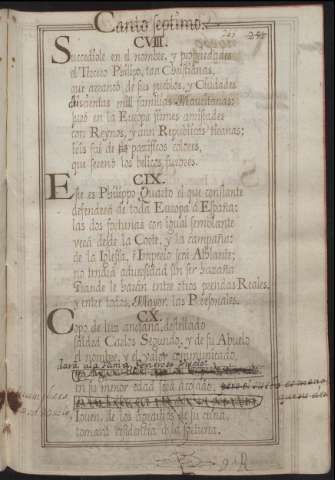 Canto septimo.
CVIII.
Sucediole en el nombre, y propiedades
el Tercero Philipo, tan Christianas,
que arrancó de sus pueblos, y Ciudades
duscientas mill familias Mauritanas:
hizo en la Europa firmes amistades
con Reynos, y aun Republicas
de pacificos colores,
que serenó los belicos furores.
CIX.
Este es Philippo Quarto el que constante
defenderá de toda Europa á España:
las dos fortunas con igual semblante
verá desde la Corte, y la campaña:
de la Iglesia, é Imperio será Athlante:
no tendrá adversidad sin ser hazaña
Grande le harán entre otros prendas Reales,
y entre todos, Mayor, las Personales.
CX.
Copo de luz anciana, destilado
saldrá Carlos Segundo, y de su Abuelo
el nombre, y el valor communicado,
dará á la fama
en su menor edad será
Joven, de los de su cuna,
tomará residencia á la fortuna.